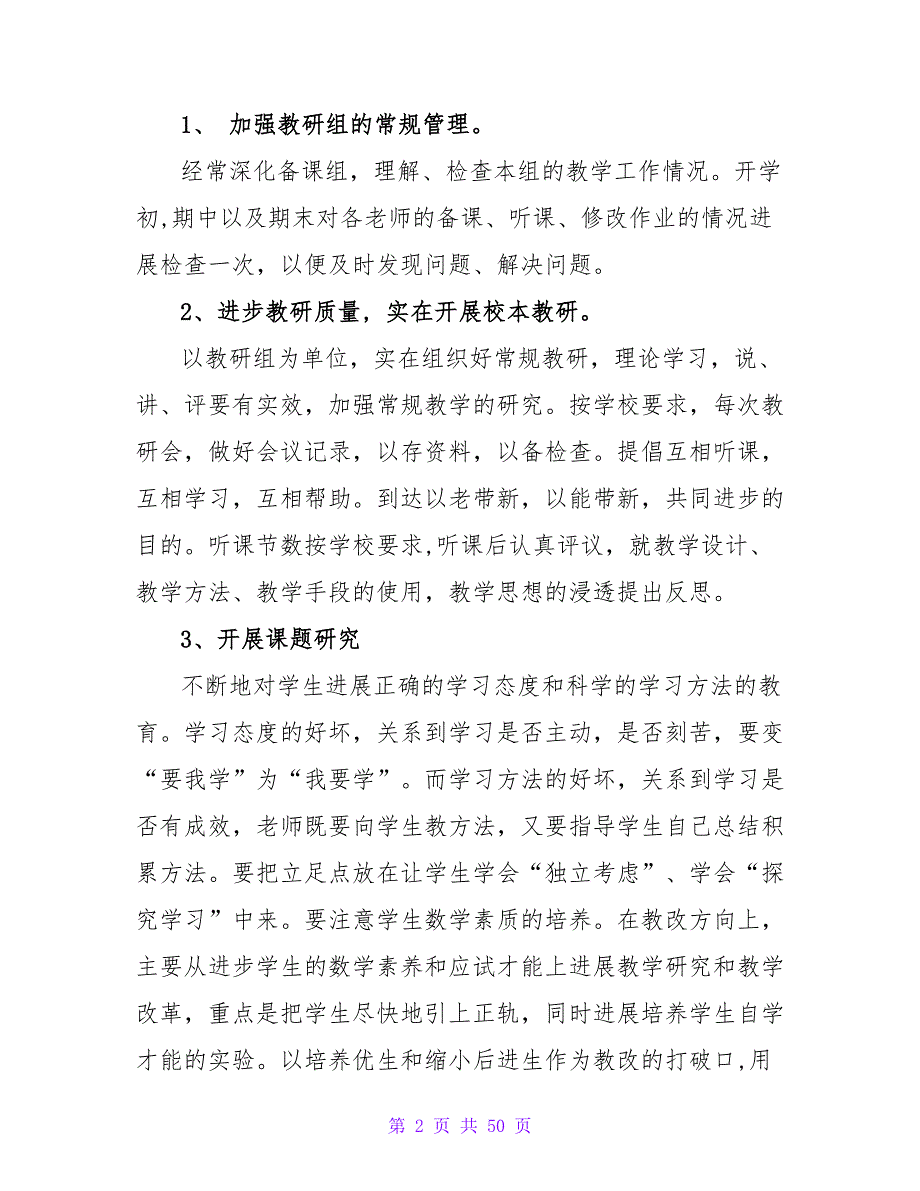 1、 加强教研组的常规管理。
经常深化备课组，理解、检查本组的教学工作情况。开学
初,期中以及期末对各老师的备课、听课、修改作业的情况进
展检查一次，以便及时发现问题、解决问题。
2、进步教研质量，实在开展校本教研。
以教研组为单位，实在组织好常规教研，理论学习，说、
讲、评要有实效，加强常规教学的研究。按学校要求，每次教
研会，做好会议记录，以存资料，以备检查。提倡互相听课，
互相学习，互相帮助。到达以老带新，以能带新，共同进步的
目的。听课节数按学校要求,听课后认真评议，就教学设计、
教学方法、教学手段的使用，教学思想的浸透提出反思。
3、开展课题研究
不断地对学生进展正确的学习态度和科学的学习方法的教
育。学习态度的好坏，关系到学习是否主动，是否刻苦，要变
“要我学”为“我要学”。而学习方法的好坏，关系到学习是
否有成效，老师既要向学生教方法，又要指导学生自己总结积
累方法。要把立足点放在让学生学会“独立考虑”、学会“探
究学习”中来。要注意学生数学素质的培养。在教改方向上，
主要从进步学生的数学素养和应试才能上进展教学研究和教学
改革，重点是把学生尽快地引上正轨，同时进展培养学生自学
才能的实验。以培养优生和缩小后进生作为教改的打破口,用
第 2 页 共 50 页